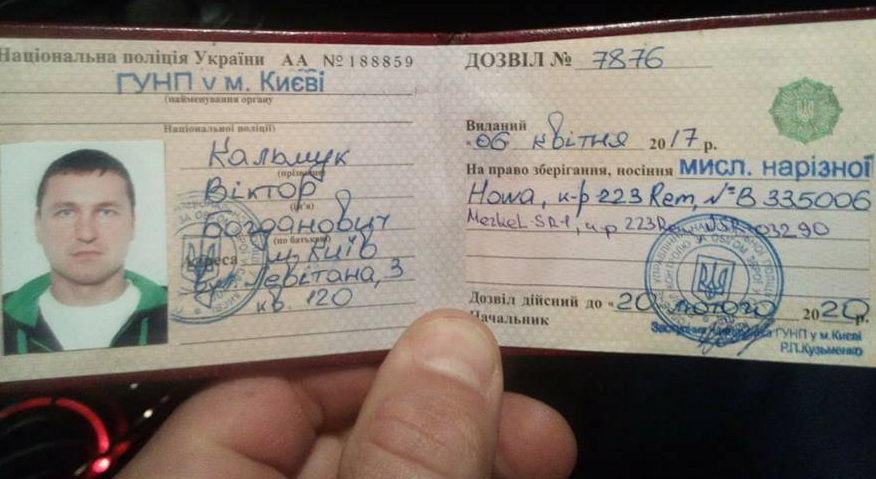 Національна поліція України АА № 188859
ГУНП у м. Києві
(найменування органу
Національної поліції)
Кальмук
(прізвище)
Віктор
(ім'я)
Богданович
(по батькові)
Адреса м. Київ
вул. Левітана, 3
кв. 120
ДОЗВІЛ № 7876
Виданий
"06 квітня 2017 р.
На право зберігання, носіння мисл. нарізної
Howa, к-р 223 Rem, № B 335006
Merkel SR1, к-р 223 Rem, 03290
Дозвіл дійсний до "20 лютого 2020 р.
Начальник
ГУНП у м. Києві
Р.П.Кузьменко